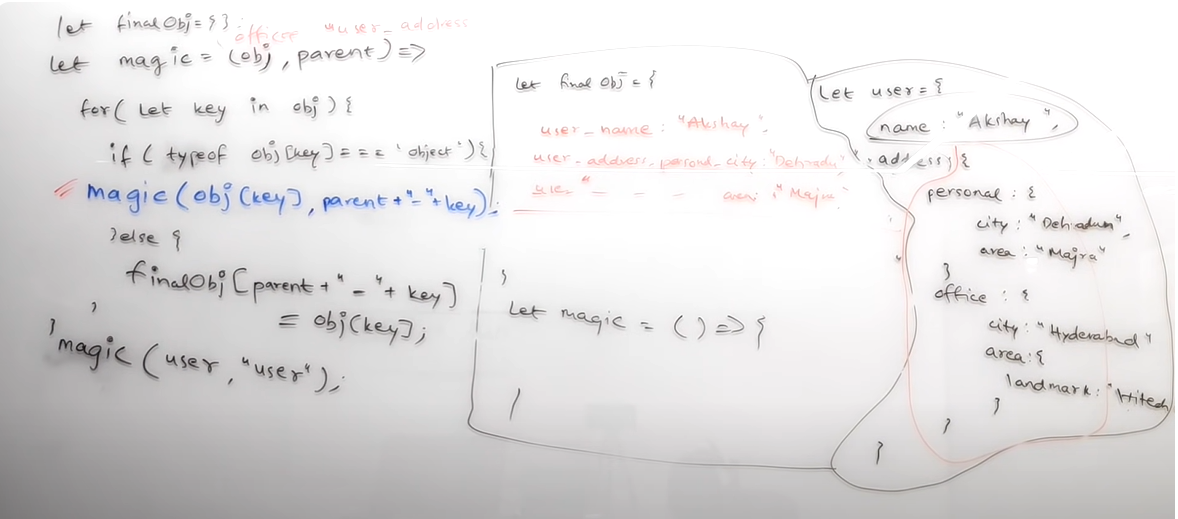 let finalObj = {};
office "user_address
Let magic = (obj, parent) =>
for( Let key in obj ) {
if ( typeof obj[key] === 'object' ) {
magic(obj[key], parent+"_"+key);
}else {
finalObj[parent+"_"+key]
= obj[key];
}
}
magic(user, "user");
Let final Obj = {
user_name : "Akshay",
user_address_personal_city : "Dehradu"
user_ - - - area : "Majra"
}
Let magic = () => {
}
Let user = {
name : "Akshay",
address: {
personal : {
city : "Dehradun",
area : "Majra"
}
office : {
city : "Hyderabad"
area: {
landmark: "Hitech
}
}
}